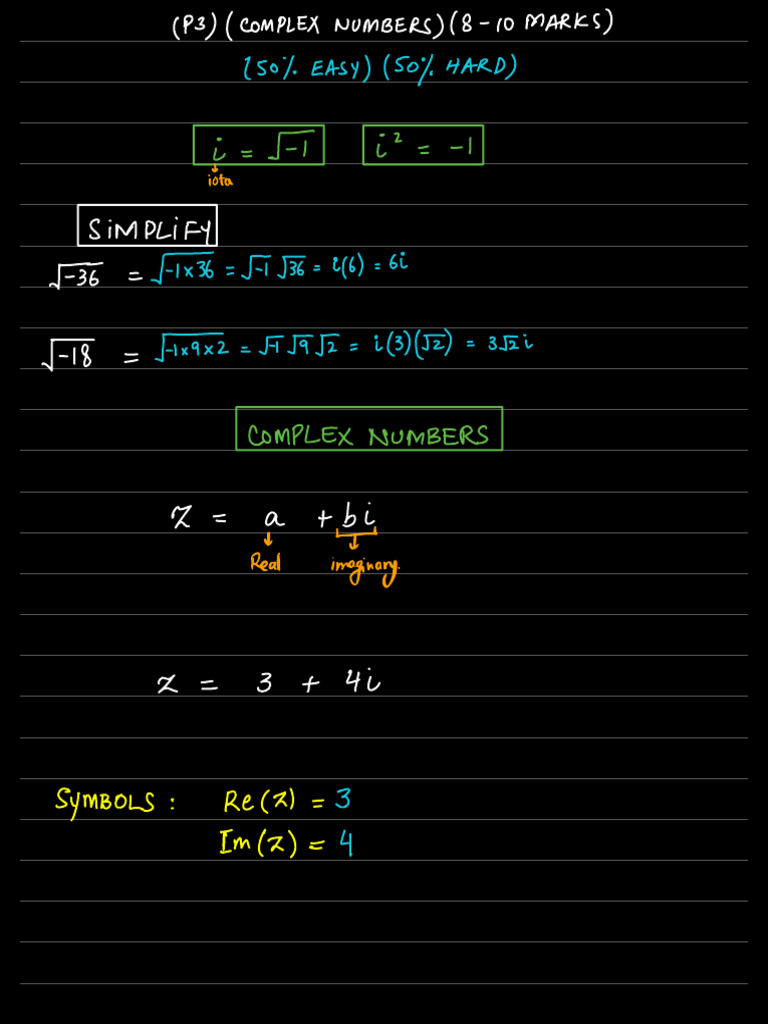 (P3) (COMPLEX NUMBERS) (8-10 MARKS)
(50% EASY) (50% HARD)
i = √-1 i² = -1
iota
SiMPLiFY
√-36 = √-1×36 = √-1 √36 = i(6) = 6i
√-18 = √-1×9×2 = √-1 √9 √2 = i(3)(√2) = 3√2 i
COMPLEX NUMBERS
Z = a + bi
Real imaginary.
Z = 3 + 4i
SYMBOLS : Re(Z) = 3
Im(Z) = 4